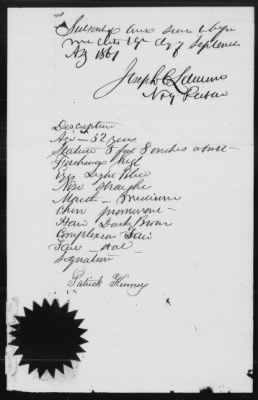 Subscribed and sworn before
me this day of September
AD 1861
Joseph C
Noty Public
Description
Age - 32 years
Stature 5 feet 8 inches
Forehead high
Eyes Light Blue
Nose Straight
Mouth - Medium
Chin prominent -
Hair Dark Brown
Complexion Fair
Face - oval -
Signature
Patrick